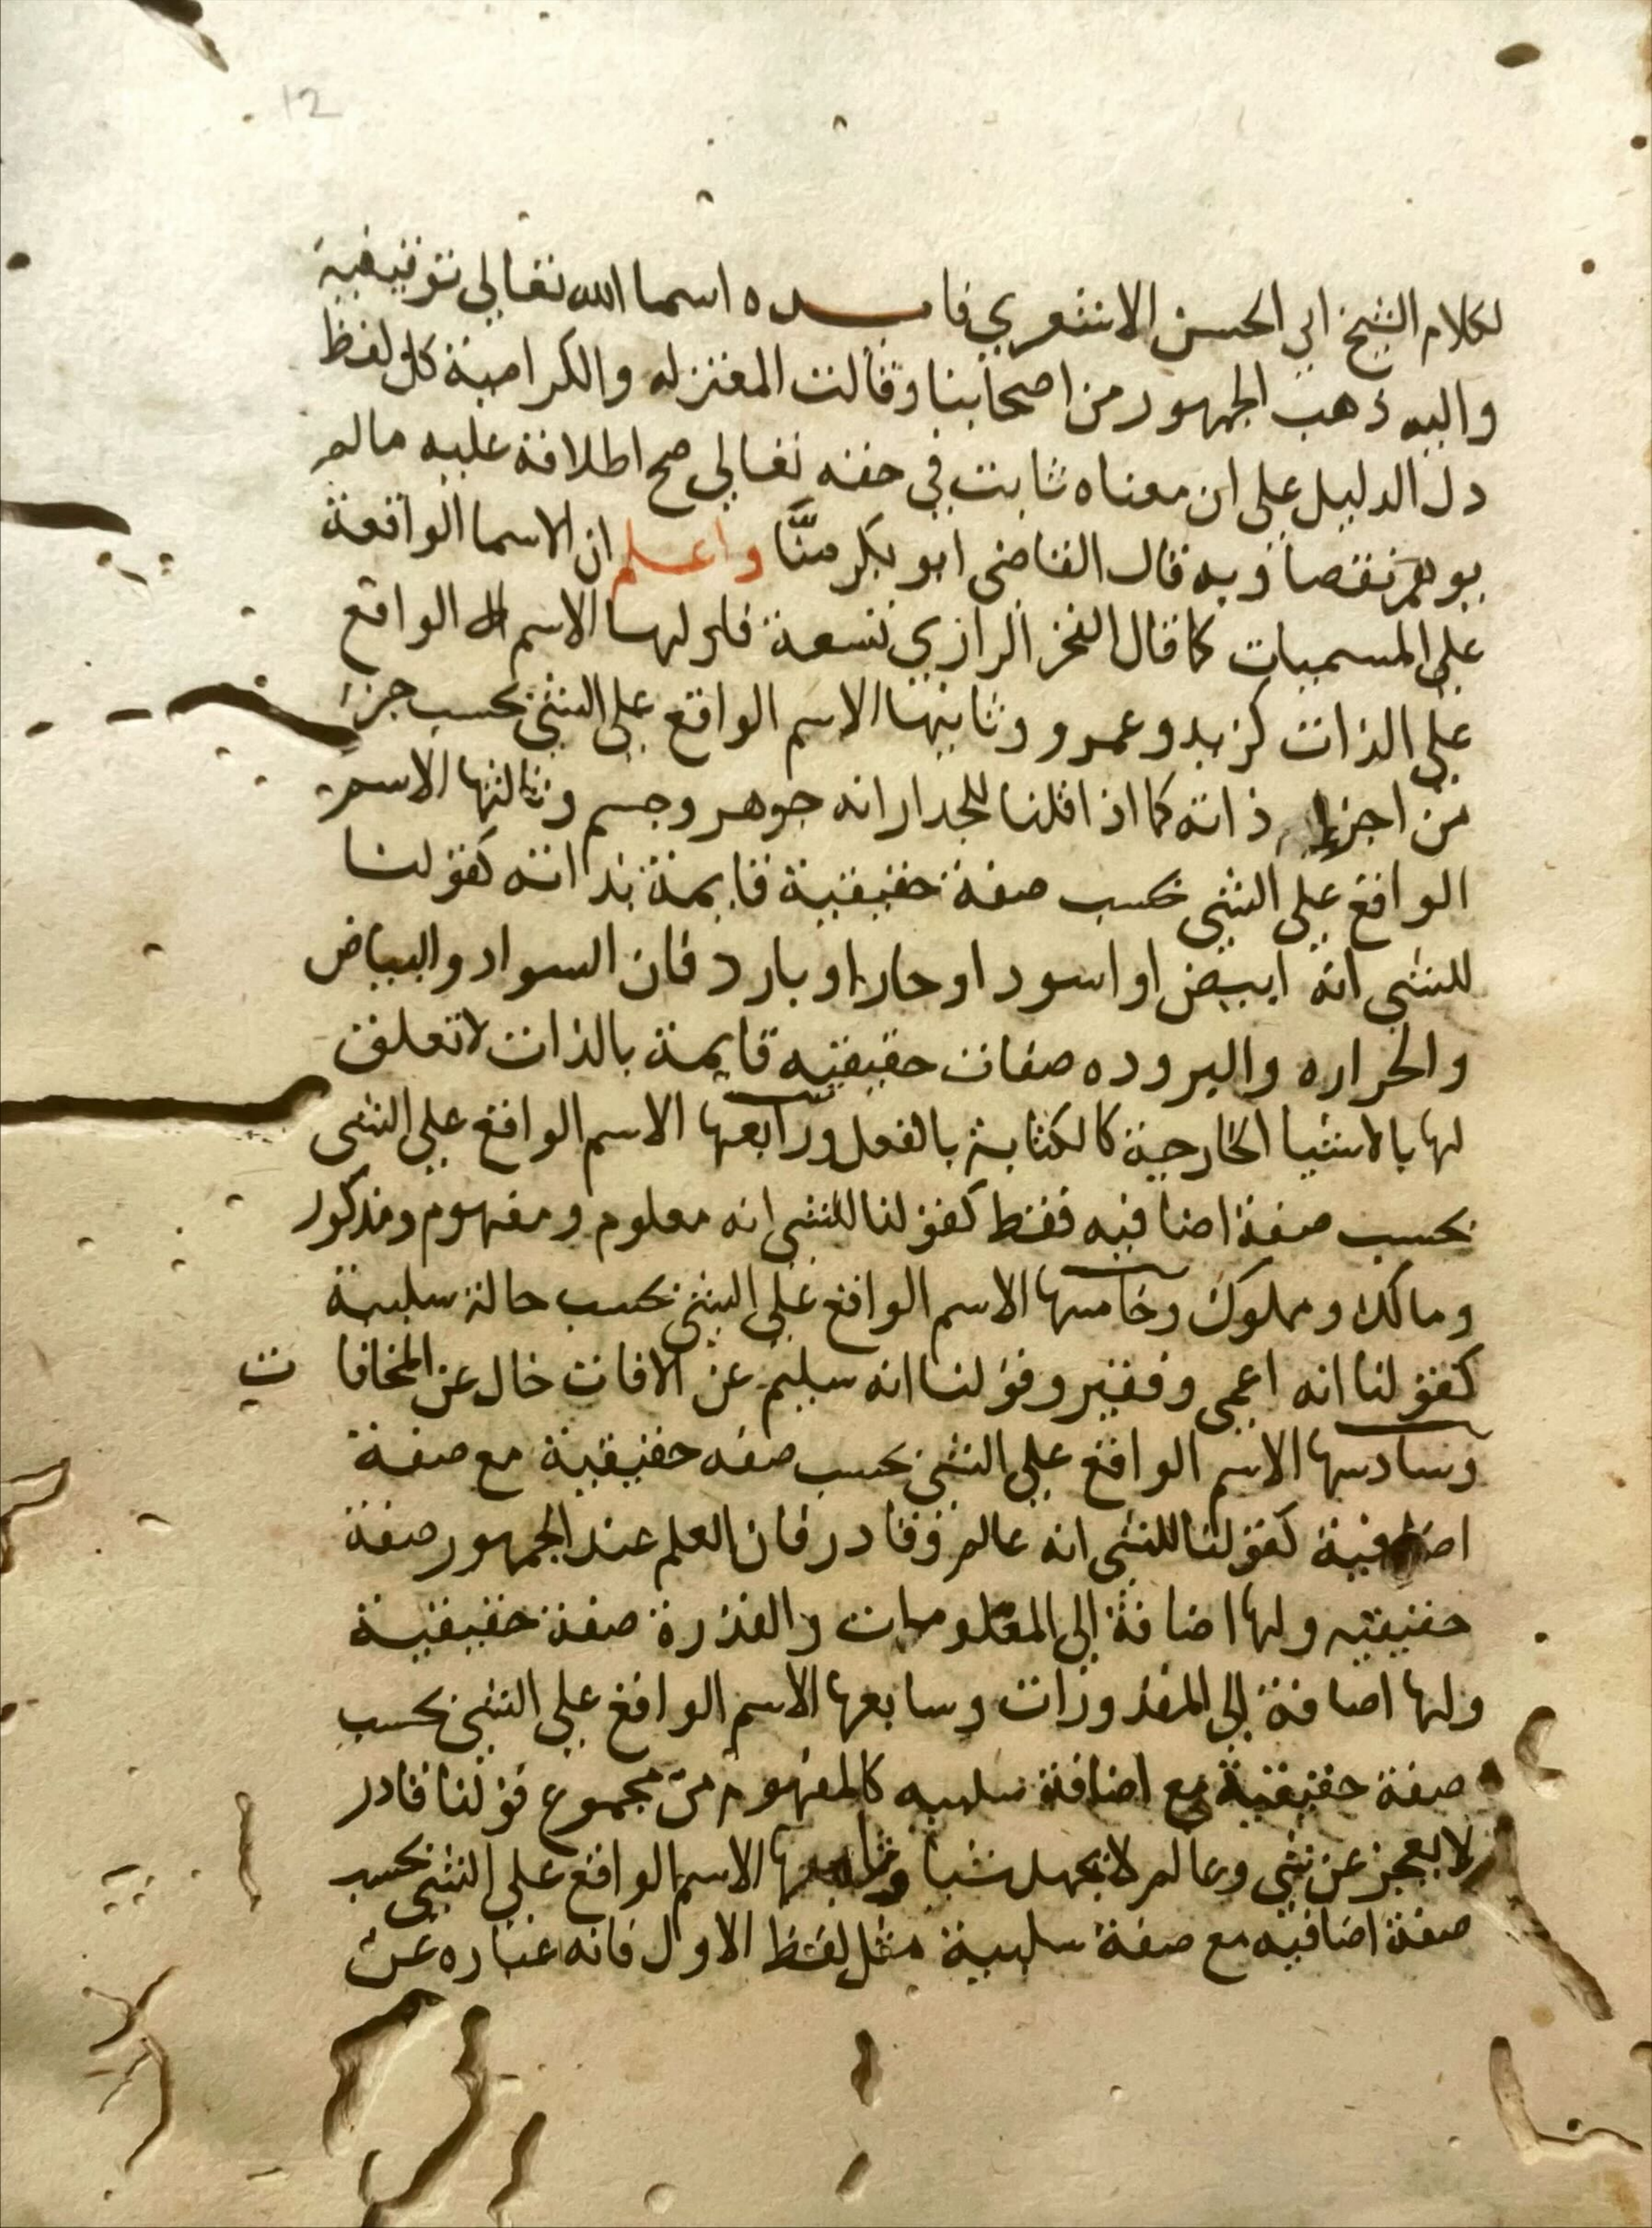 12
لكلام الشيخ ابي الحسن الاشعري فايده اسما الله تعالي توقيفية
واليه ذهب الجمهور من اصحابنا وقالت المعتزله والكرامية كل لفظ
دل الدليل علي ان معناه ثابت في حقه تعالي صح اطلاقه عليه مالم
يوهم نقصا وبه قال القاضي ابو بكر منَّا واعلم ان الاسما الواقعة
علي المسميات كما قال الفخر الرازي تسعة فاولها الاسم الواقع
علي الذات كزيد وعمرو وثانيها الاسم الواقع علي الشي بحسب جزء
من اجزاء ذاته كما اذا قلنا للجدار انه جوهر وجسم وثالثها الاسم
الواقع علي الشي بحسب صفة حقيقية قايمة بذاته كقولنا
للشي انه ابيض او اسود او حار او بارد فان السواد والبياض
والحراره والبروده صفات حقيقيه قايمة بالذات لا تعلق
لها بالاشيا الخارجية كالكتابة بالفعل ورابعها الاسم الواقع علي الشي
بحسب صفة اضافيه فقط كقولنا للشي انه معلوم ومفهوم ومذكور
ومالك ومملوك وخامسها الاسم الواقع علي الشي بحسب حالة سلبية
كقولنا انه اعمي وفقير وقولنا انه سليم عن الافات خال عن المخافات
وسادسها الاسم الواقع علي الشي بحسب صفه حقيقية مع صفة
اضافية كقولنا للشي انه عالم وقادر فان العلم عند الجمهور صفة
حقيقيه ولها اضافة الي المعلومات والقدرة صفة حقيقية
ولها اضافة الي المقدورات وسابعها الاسم الواقع علي الشي بحسب
صفة حقيقية مع اضافة سلبيه كالمفهوم من مجموع قولنا قادر
لا يعجز عن شي وعالم لا يجهل شيا وثامنها الاسم الواقع علي الشي بحسب
صفة اضافيه مع صفة سلبية مثل لفظ الاول فانه عباره عن